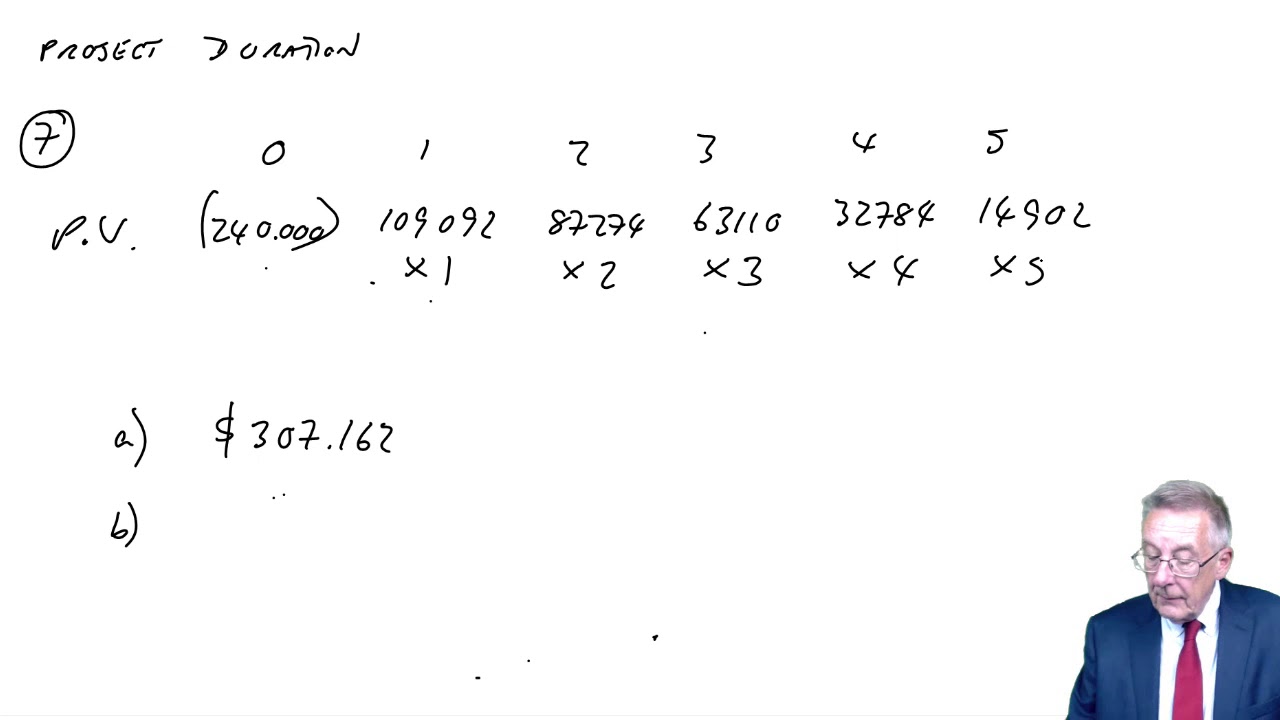 PROJECT DURATION
7
0 1 2 3 4 5
P.V. (240.000) 109092 87274 63110 32784 14902
× 1 × 2 × 3 × 4 × 5
a) $307.162
b)